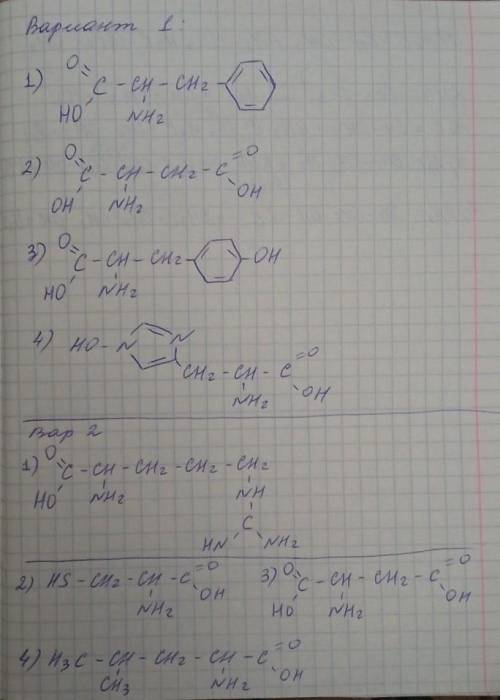 Вариант 1:
1) O=C(HO)-CH(NH2)-CH2-
2) O=C(OH)-CH(NH2)-CH2-C(=O)OH
3) O=C(HO)-CH(NH2)-CH2- -OH
4) HO-N N CH2-CH(NH2)-C(=O)OH
Вар 2
1) O=C(HO)-CH(NH2)-CH2-CH2-CH2
NH
C
HN NH2
2) HS-CH2-CH(NH2)-C(=O)OH 3) O=C(HO)-CH(NH2)-CH2-C(=O)OH
4) H3C-CH(CH3)-CH2-CH(NH2)-C(=O)OH